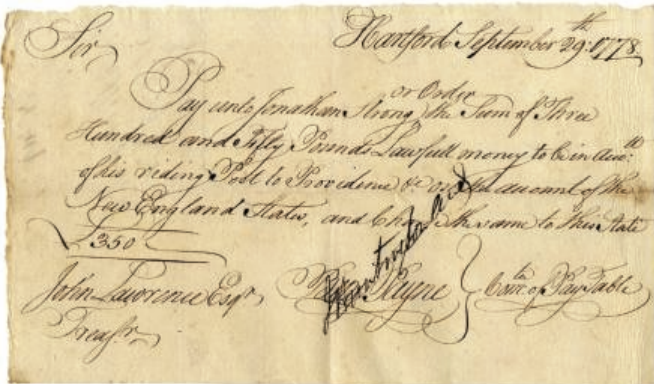 Hartford September 29th: 1778
Sir
Pay unto Jonathan Strong or Order the Sum of Three
Hundred and Fifty Pounds Lawfull money to be in
of his riding Post to Providence &c on the amount of the
New England States, and Charge the same to this State
£350
John Lawrence Esqr
Pleyne
Comtte of Pay Table
Treasr